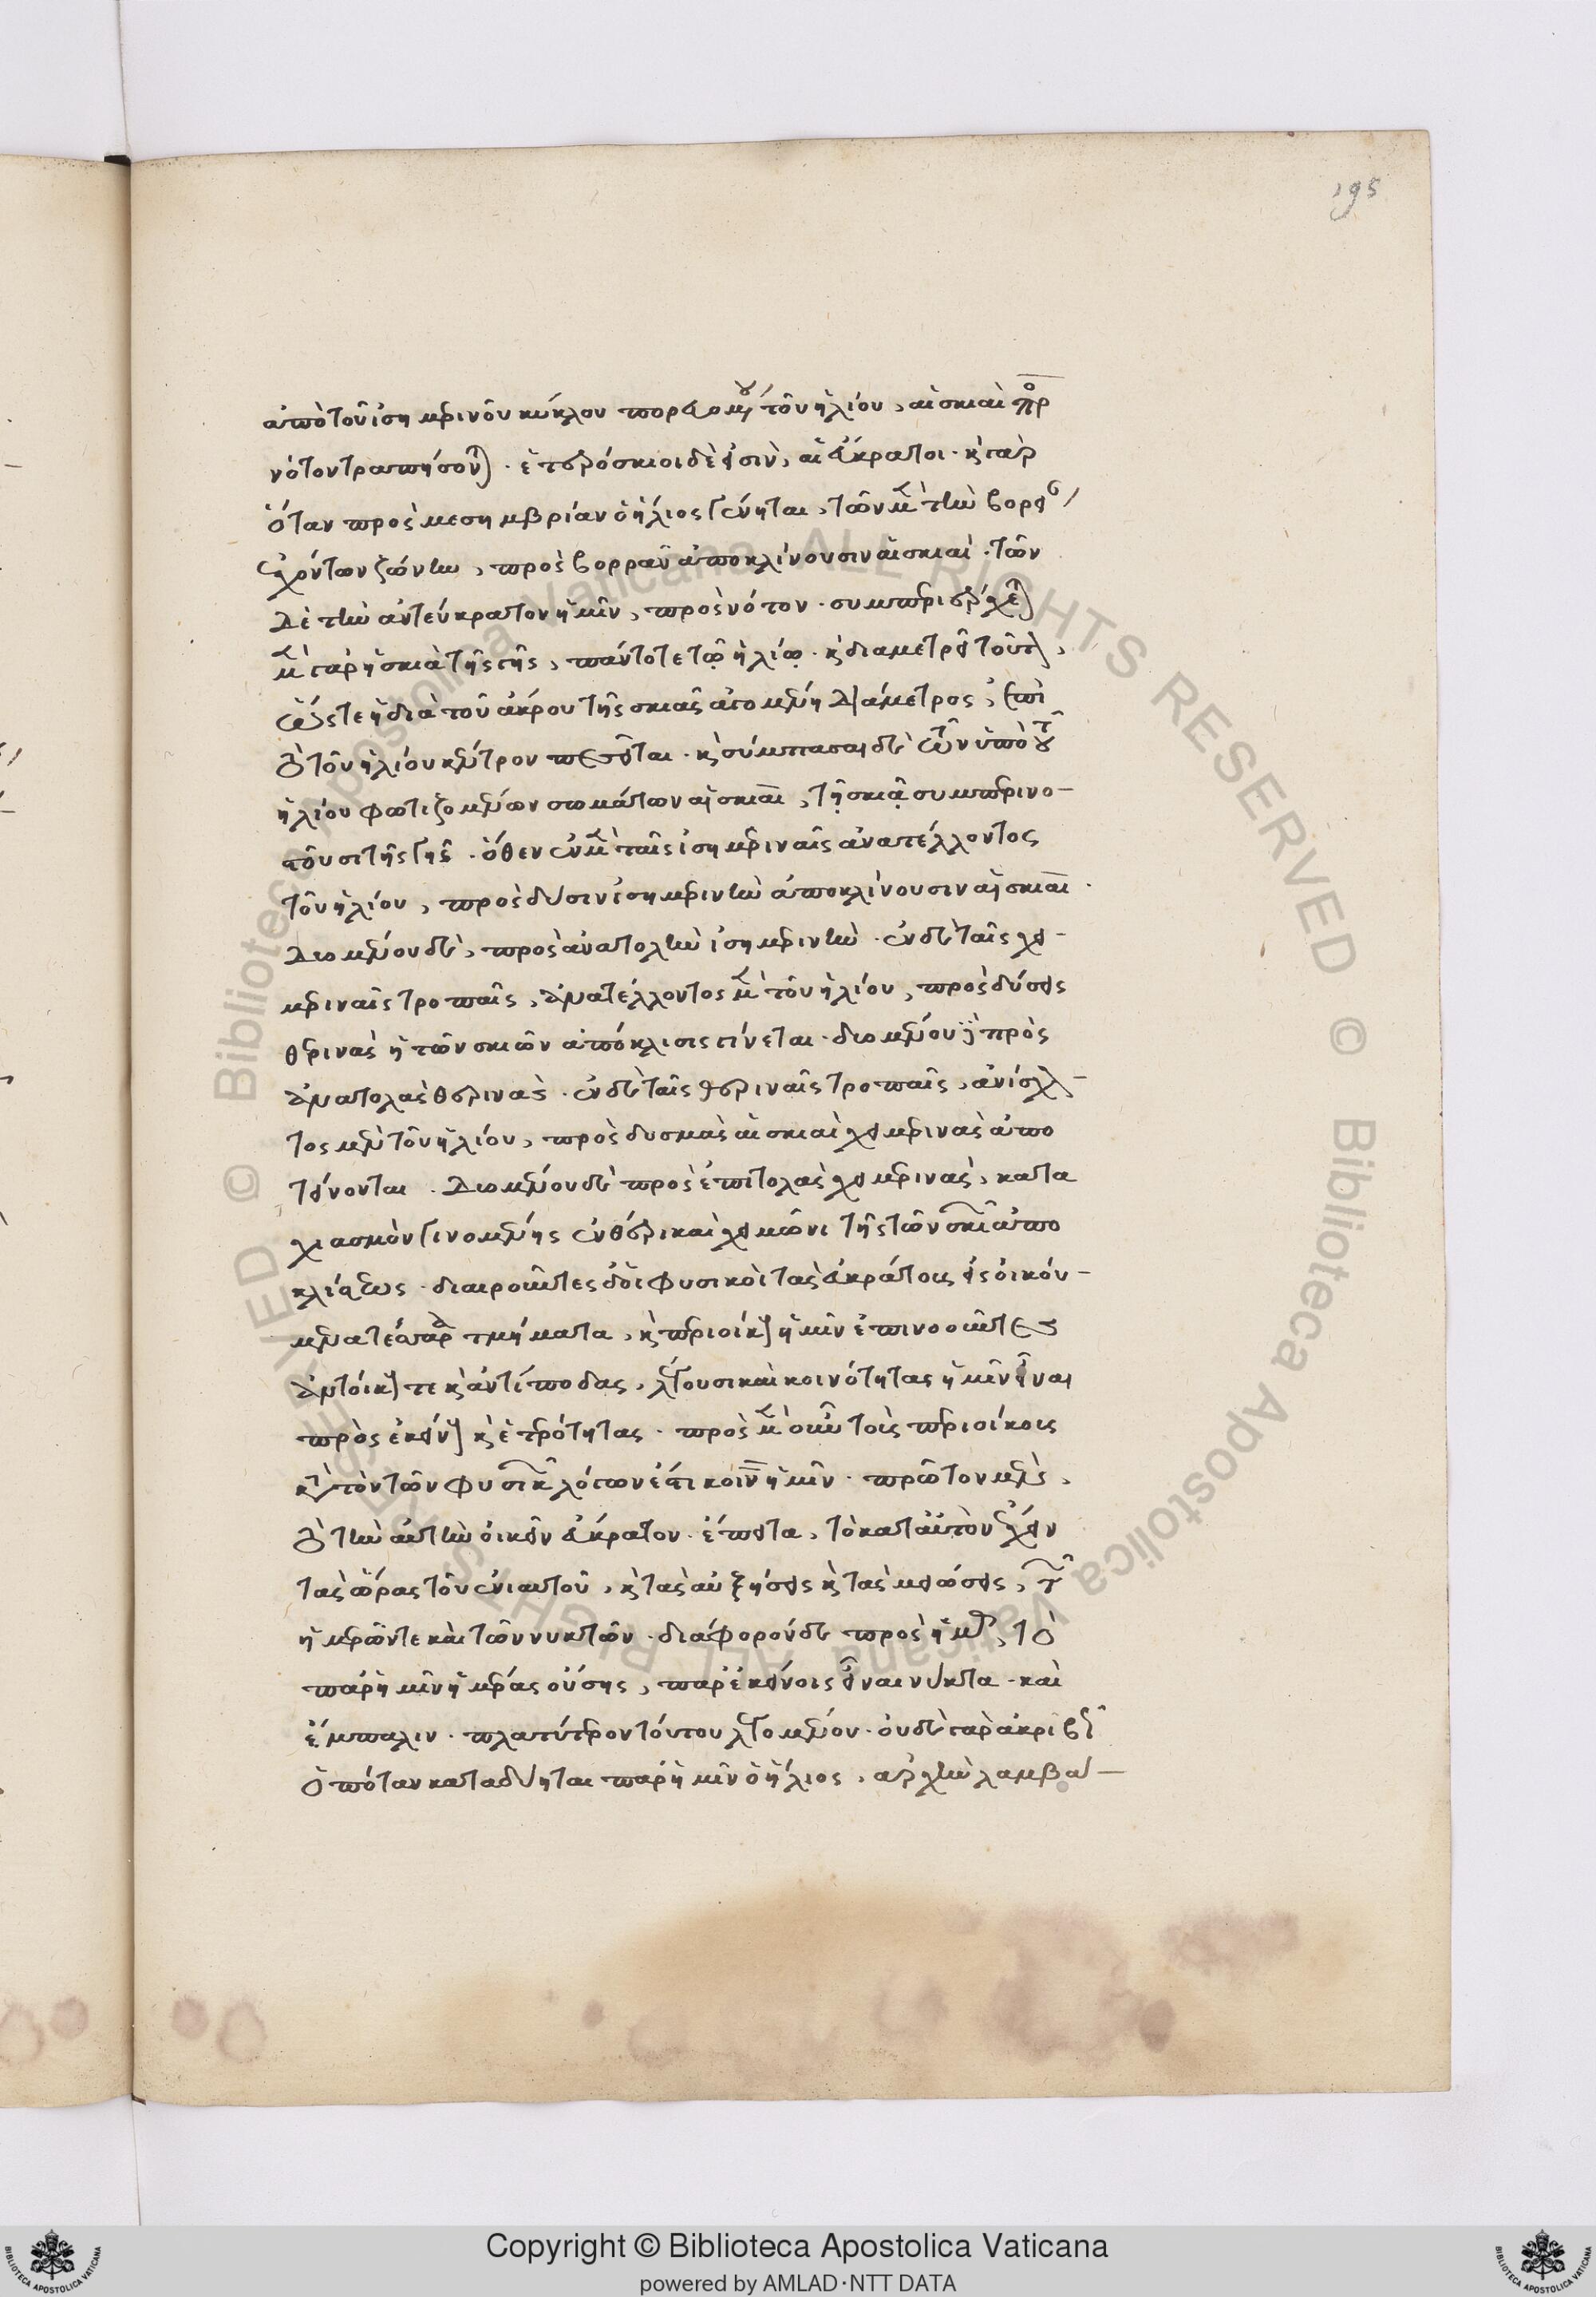 195
ἀπὸ τοῦ ἰσημερινοῦ κύκλου πορευομένου τοῦ ἡλίου, αἱ σκιαὶ πρὸς
νότον τραπήσονται. ἑτερόσκιοι δὲ εἰσὶν, αἱ εὔκρατοι. καὶ γὰρ
ὅταν πρὸς μεσημβρίαν ὁ ἥλιος γένηται, τῶν μὲν τὴν βόρειον
ἐχόντων ζώνην, πρὸς βορρᾶν ἀποκλίνουσιν αἱ σκιαὶ. τῶν
δὲ τὴν ἀντεύκρατον ἡμῖν, πρὸς νότον. συμπεριέρχεται
μὲν γὰρ ἡ σκιὰ τῆς γῆς, πάντοτε τῷ ἡλίῳ. καὶ διαμετρεῖ τοῦτον,
ὥστε ἡ διὰ τοῦ ἄκρου τῆς σκιᾶς ἀγομένη διάμετρος, ἐπὶ
τὸ τοῦ ἡλίου κέντρον πεσεῖται. καὶ σύμπασαι δὲ τῶν ὑπὸ τοῦ
ἡλίου φωτιζομένων σωμάτων αἱ σκιαὶ, τῇ σκιᾷ συμπερινο-
στοῦσι τῆς γῆς. ὅθεν ἐν μὲν ταῖς ἰσημεριναῖς ἀνατέλλοντος
τοῦ ἡλίου, πρὸς δύσιν ἰσημερινὴν ἀποκλίνουσιν αἱ σκιαὶ.
δυομένου δὲ, πρὸς ἀνατολὴν ἰσημερινὴν. ἐν δὲ ταῖς χει-
μεριναῖς τροπαῖς, ἀνατέλλοντος μὲν τοῦ ἡλίου, πρὸς δύσεις
θερινὰς ἡ τῶν σκιῶν ἀπόκλισις γίνεται. δυομένου δὲ πρὸς
ἀνατολὰς θερινὰς. ἐν δὲ ταῖς θεριναῖς τροπαῖς, ἀνίσχον-
τος μὲν τοῦ ἡλίου, πρὸς δυσμὰς αἱ σκιαὶ χειμερινὰς ἀπο
τείνονται. δυομένου δὲ πρὸς ἐπιτολὰς χειμερινὰς, κατα
χιασμὸν γινομένης ἐν θέρει καὶ χειμῶνι τῆς τῶν σκιῶν ἀπο
κλίσεως. διαιροῦντες δὲ οἱ φυσικοὶ τὰς εὐκράτους εἰς οἰκού-
μενα τέσσαρα τμήματα, καὶ περιοίκους ἡμῖν ἐπινοοῦντες
ἀντοίκους τε καὶ ἀντίποδας, λέγουσι καὶ κοινότητας ἡμῖν εἶναι
πρὸς ἐκείνους καὶ ἑτερότητας. πρὸς μὲν οὖν τοὺς περιοίκους
κατὰ τὸν τῶν φυσικῶν λόγον ἐστι κοινὸν ἡμῖν. πρῶτον μὲν,
τὸ τὴν αὐτὴν οἰκεῖν εὔκρατον. ἔπειτα, τὸ κατ' αὐτὸν ἔχειν
τὰς ὥρας τοῦ ἐνιαυτοῦ, καὶ τὰς αὐξήσεις καὶ τὰς μειώσεις, τῶν
ἡμερῶν τε καὶ τῶν νυκτῶν. διάφορον δὲ πρὸς ἡμᾶς, τὸ
παρ' ἡμῖν ἡμέρας οὔσης, παρ' ἐκείνοις εἶναι νύκτα. καὶ
ἔμπαλιν. πλατύτερον τούτου λεγομένου. οὐδὲ γὰρ ἀκριβῶς
ὁπόταν καταδύηται παρ' ἡμῖν ὁ ἥλιος, ἀρχὴν λαμβάν-
Copyright © Biblioteca Apostolica Vaticana
powered by AMLAD·NTT DATA